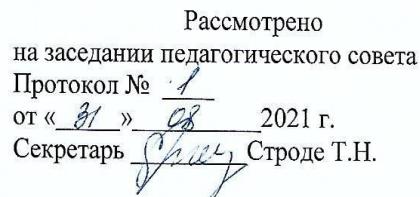 Рассмотрено
на заседании педагогического совета
Протокол № 1
от «31» 08 2021 г.
Секретарь Строде Т.Н.